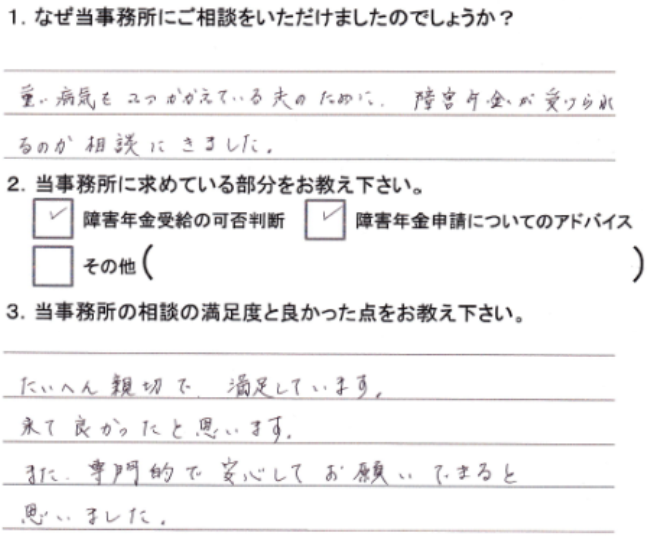 1. なぜ当事務所にご相談をいただけましたのでしょうか？
重い病気を2つかかえている夫のために、障害年金が受けられ
るのか相談にきました。
2. 当事務所に求めている部分をお教え下さい。
障害年金受給の可否判断 障害年金申請についてのアドバイス
その他（ ）
3. 当事務所の相談の満足度と良かった点をお教え下さい。
たいへん親切で、満足しています。
来て良かったと思います。
また、専門的で安心してお願いできると
思いました。